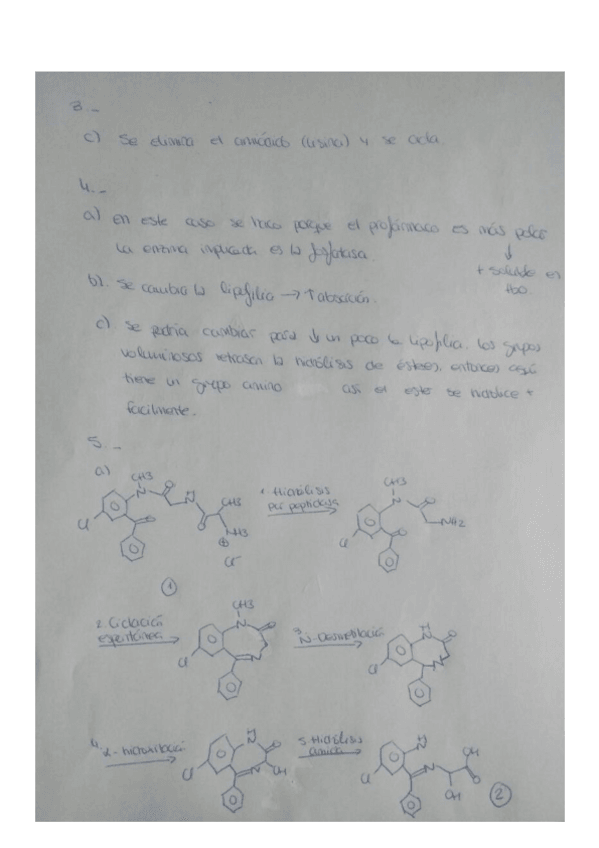 3.-
c) Se elimina el aminoácido (lisina) y se cicla.
4.-
a) en este caso se hace porque el profármaco es más polar
La enzima implicada es la fosfatasa.
↓
+ soluble en
H2O.
b). Se cambia la lipofilia → ↑ absorción.
c) Se podría cambiar para ↓ un poco la lipofilia. Los grupos
voluminosos retrasan la hidrólisis de ésteres, entonces aquí
tiene un grupo amino así el ester se hidrolice +
facilmente.
5.-
a)
CH3
N
O
N
H
O
CH3
NH3
⊕
Cl-
Cl
O
1
1. Hidrólisis
por peptidasa
CH3
N
O
NH2
O
Cl
2. Ciclación
espontánea
CH3
N
O
N
Cl
3. N-Desmetilación
H
N
O
N
Cl
4. α-hidroxilación
H
N
O
OH
N
Cl
5. Hidrólisis
amida
H
N
OH
O
N
OH
Cl
2